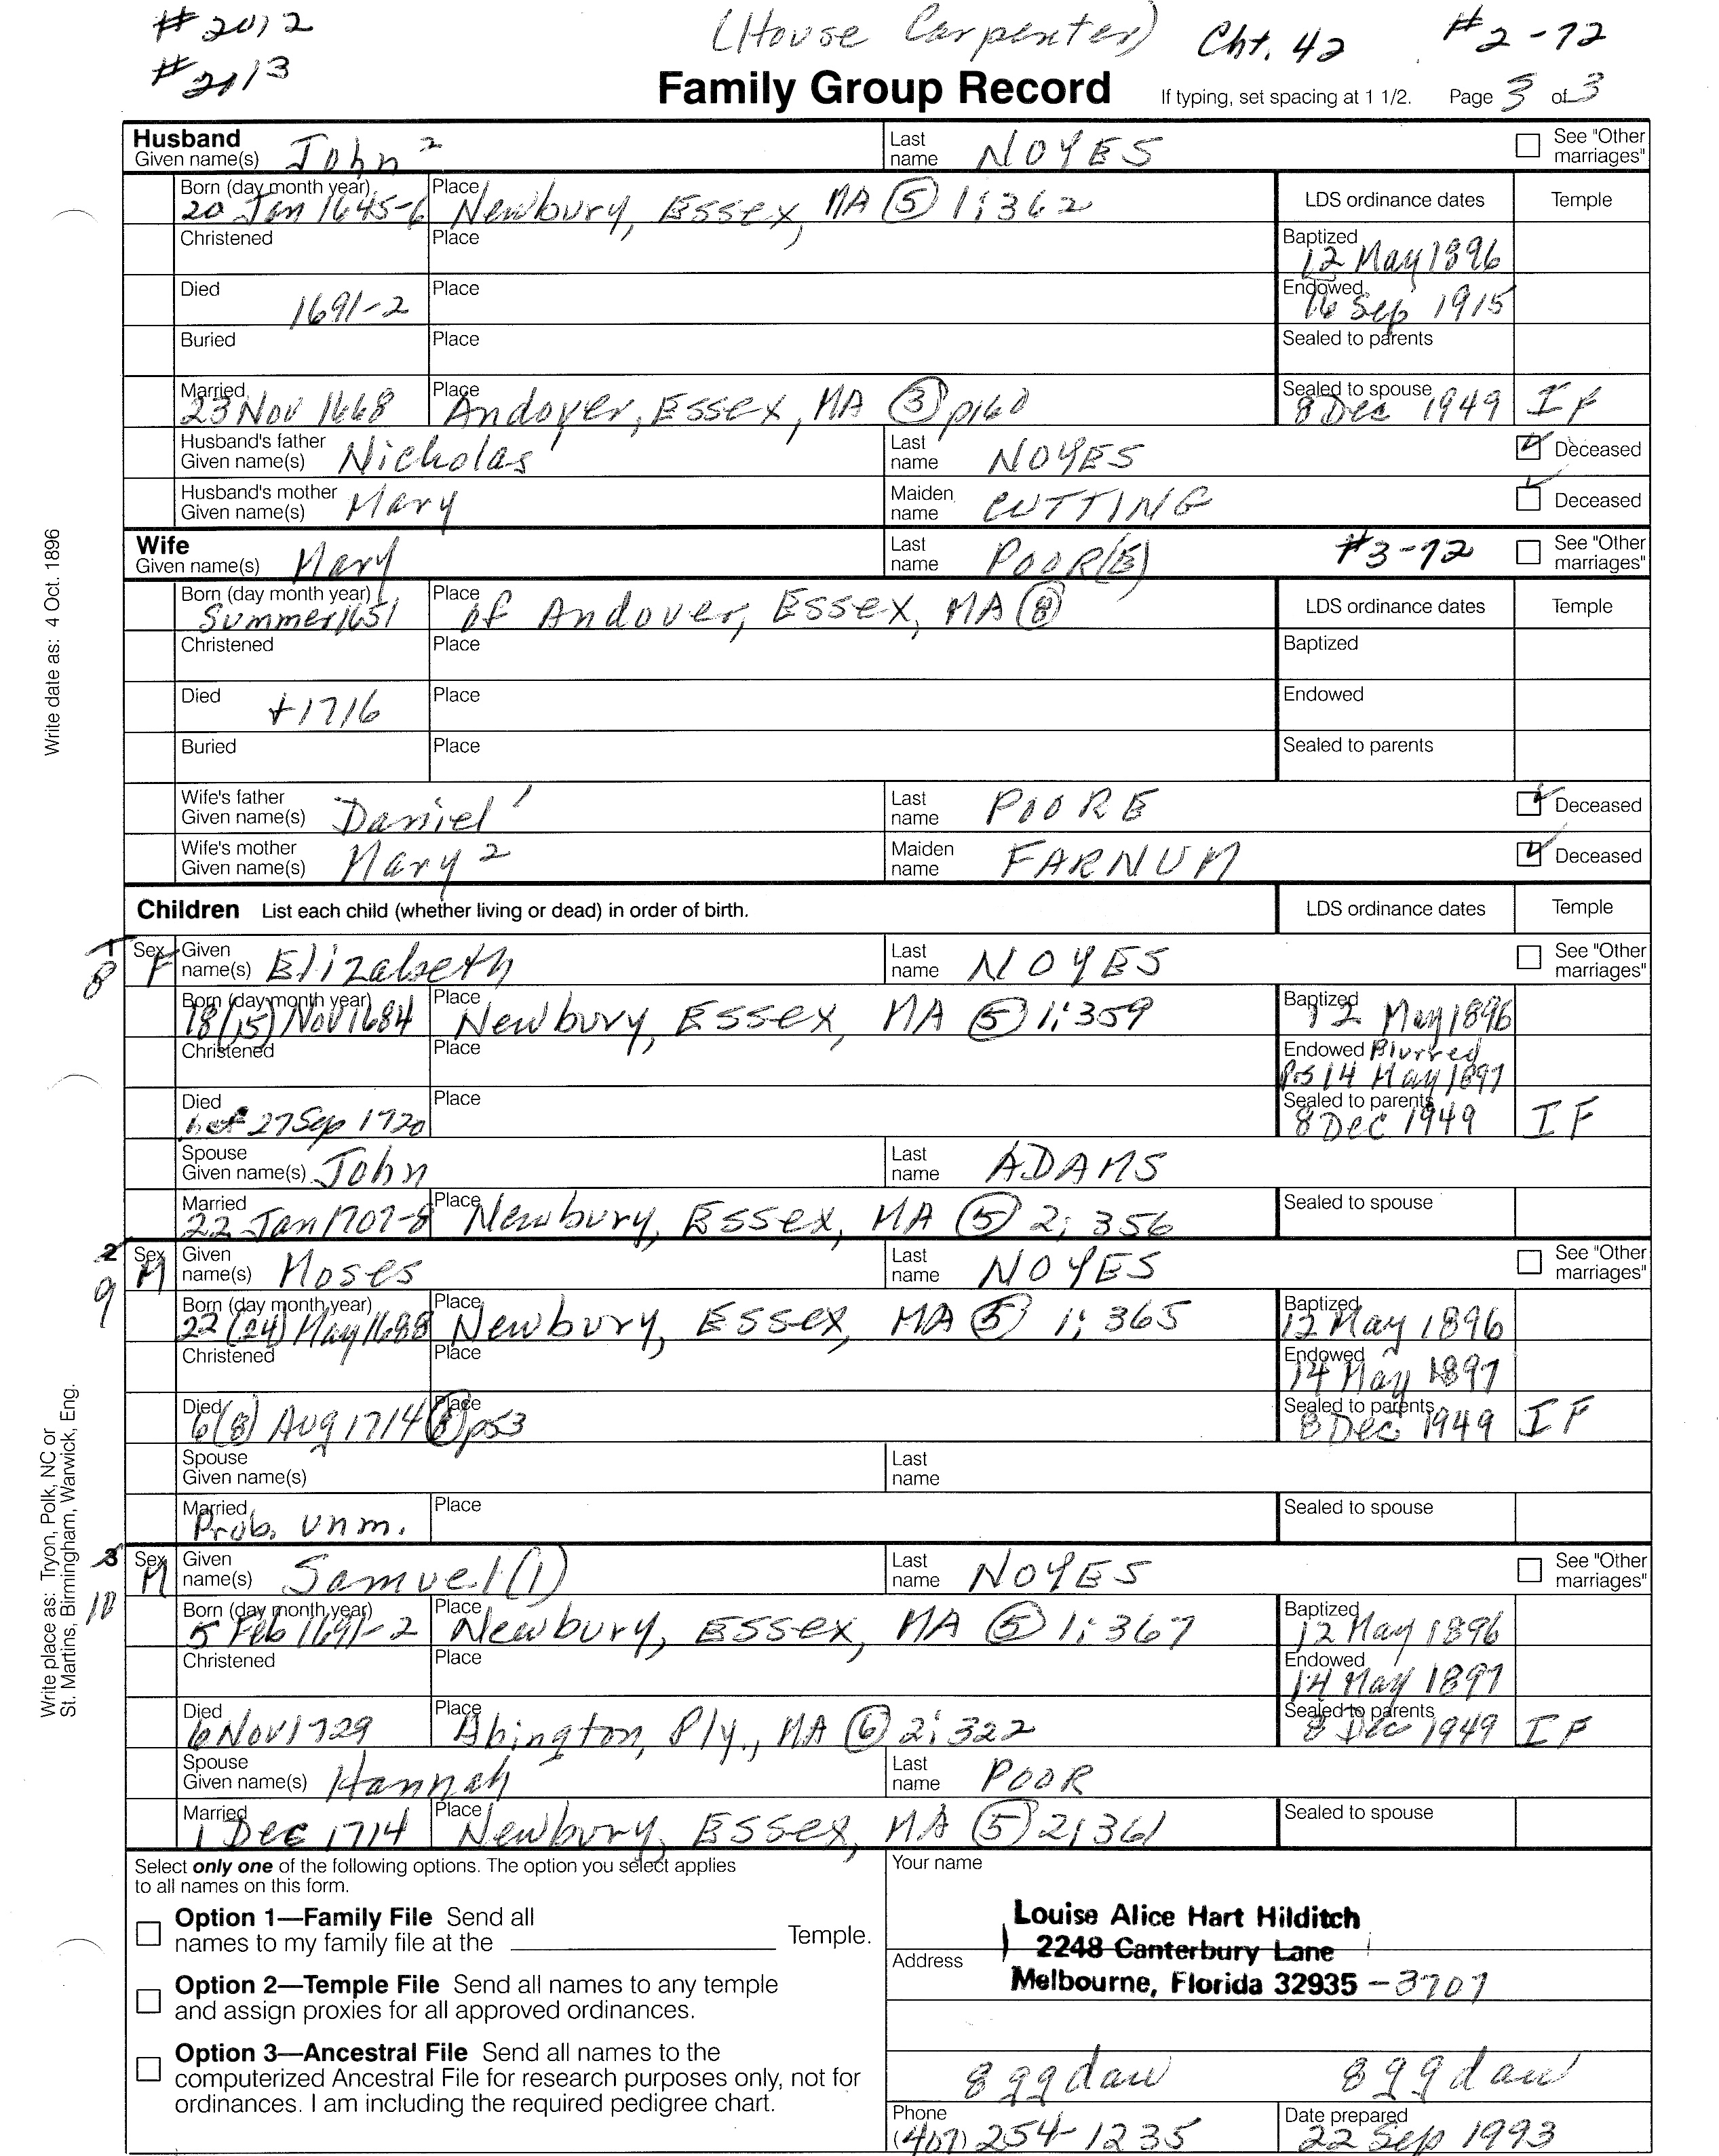 #2012
(House Carpenter) Cht. 42 #2-72
#2113
Family Group Record If typing, set spacing at 1 1/2. Page 3 of 3
Husband
Given name(s) John 2 Last name NOYES See "Other marriages"
Born (day month year) 20 Jan 1645-6 Place Newbury, Essex, MA (5) 1:362 LDS ordinance dates Temple
Christened Place Baptized 12 May 1896
Died 1691-2 Place Endowed 16 Sep 1915
Buried Place Sealed to parents
Married 23 Nov 1668 Place Andover, Essex, MA (3) p160 Sealed to spouse 8 Dec 1949 IF
Husband's father Given name(s) Nicholas Last name NOYES Deceased
Husband's mother Given name(s) Mary Maiden name CUTTING Deceased
Wife
Given name(s) Mary Last name POOR(E) #3-72 See "Other marriages"
Born (day month year) Summer 1651 Place of Andover, Essex, MA (8) LDS ordinance dates Temple
Christened Place Baptized
Died +1716 Place Endowed
Buried Place Sealed to parents
Wife's father Given name(s) Daniel 1 Last name POORE Deceased
Wife's mother Given name(s) Mary 2 Maiden name FARNUM Deceased
Children List each child (whether living or dead) in order of birth. LDS ordinance dates Temple
1 8 Sex F Given name(s) Elizabeth Last name NOYES See "Other marriages"
Born (day month year) 18(15) Nov 1684 Place Newbury, Essex, MA (5) 1:359 Baptized 12 May 1896
Christened Place Endowed Blurred Pos 14 May 1897
Died bef 27 Sep 1720 Place Sealed to parents 8 Dec 1949 IF
Spouse Given name(s) John Last name ADAMS
Married 22 Jan 1707-8 Place Newbury, Essex, MA (5) 2:356 Sealed to spouse
2 9 Sex M Given name(s) Moses Last name NOYES See "Other marriages"
Born (day month year) 22 (24) May 1688 Place Newbury, Essex, MA (5) 1:365 Baptized 12 May 1896
Christened Place Endowed 14 May 1897
Died 6(8) Aug 1714 Place (8) p53 Sealed to parents 8 Dec 1949 IF
Spouse Given name(s) Last name
Married Prob. unm. Place Sealed to spouse
3 10 Sex M Given name(s) Samuel (1) Last name NOYES See "Other marriages"
Born (day month year) 5 Feb 1691-2 Place Newbury, Essex, MA (5) 1:367 Baptized 12 May 1896
Christened Place Endowed 14 May 1897
Died 6 Nov 1729 Place Abington, Ply., MA (6) 2:322 Sealed to parents 8 Dec 1949 IF
Spouse Given name(s) Hannah Last name POOR
Married 1 Dec 1714 Place Newbury, Essex, MA (5) 2:361 Sealed to spouse
Select only one of the following options. The option you select applies
to all names on this form.
Option 1—Family File Send all
names to my family file at the Temple.
Option 2—Temple File Send all names to any temple
and assign proxies for all approved ordinances.
Option 3—Ancestral File Send all names to the
computerized Ancestral File for research purposes only, not for
ordinances. I am including the required pedigree chart.
Your name
Louise Alice Hart Hilditch
Address 2248 Canterbury Lane
Melbourne, Florida 32935 -3707
Phone (407) 254-1235 Date prepared 22 Sep 1993
Write date as: 4 Oct. 1896
Write place as: Tryon, Polk, NC or
St. Martins, Birmingham, Warwick, Eng.